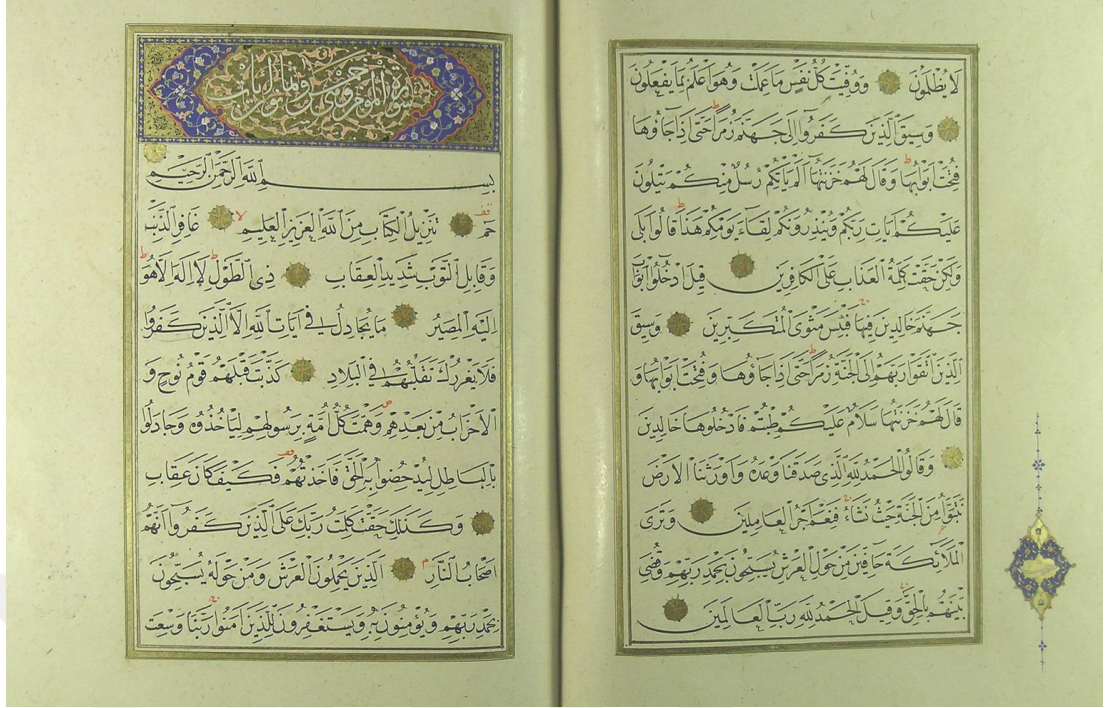 لا يظلمون ووفيت كل نفس ما عملت وهو اعلم بما يفعلون
وسيق الذين كفروا الى جهنم زمرا حتى اذا جاؤها
فتحت ابوابها وقال لهم خزنتها الم ياتكم رسل منكم يتلون
عليكم ايات ربكم وينذرونكم لقاء يومكم هذا قالوا بلى
ولكن حقت كلمة العذاب على الكافرين قيل ادخلوا ابواب
جهنم خالدين فيها فبئس مثوى المتكبرين وسيق
الذين اتقوا ربهم الى الجنة زمرا حتى اذا جاؤها وفتحت ابوابها و
قال لهم خزنتها سلام عليكم طبتم فادخلوها خالدين
وقالوا الحمد لله الذي صدقنا وعده واورثنا الارض
نتبوا من الجنة حيث نشاء فنعم اجر العاملين وترى
الملائكة حافين من حول العرش يسبحون بحمد ربهم وقضي
بينهم بالحق وقيل الحمد لله رب العالمين
سورة المؤمن وهي خمس وثمانون
بسم الله الرحمن الرحيم
حم تنزيل الكتاب من الله العزيز العليم غافر الذنب
وقابل التوب شديد العقاب ذي الطول لا اله الا هو
اليه المصير ما يجادل في ايات الله الا الذين كفروا
فلا يغررك تقلبهم في البلاد كذبت قبلهم قوم نوح و
الاحزاب من بعدهم وهمت كل امة برسولهم لياخذوه وجادلوا
بالباطل ليدحضوا به الحق فاخذتهم فكيف كان عقاب
وكذلك حقت كلمت ربك على الذين كفروا انهم
اصحاب النار الذين يحملون العرش ومن حوله يسبحون
بحمد ربهم ويؤمنون به ويستغفرون للذين امنوا ربنا وسعت